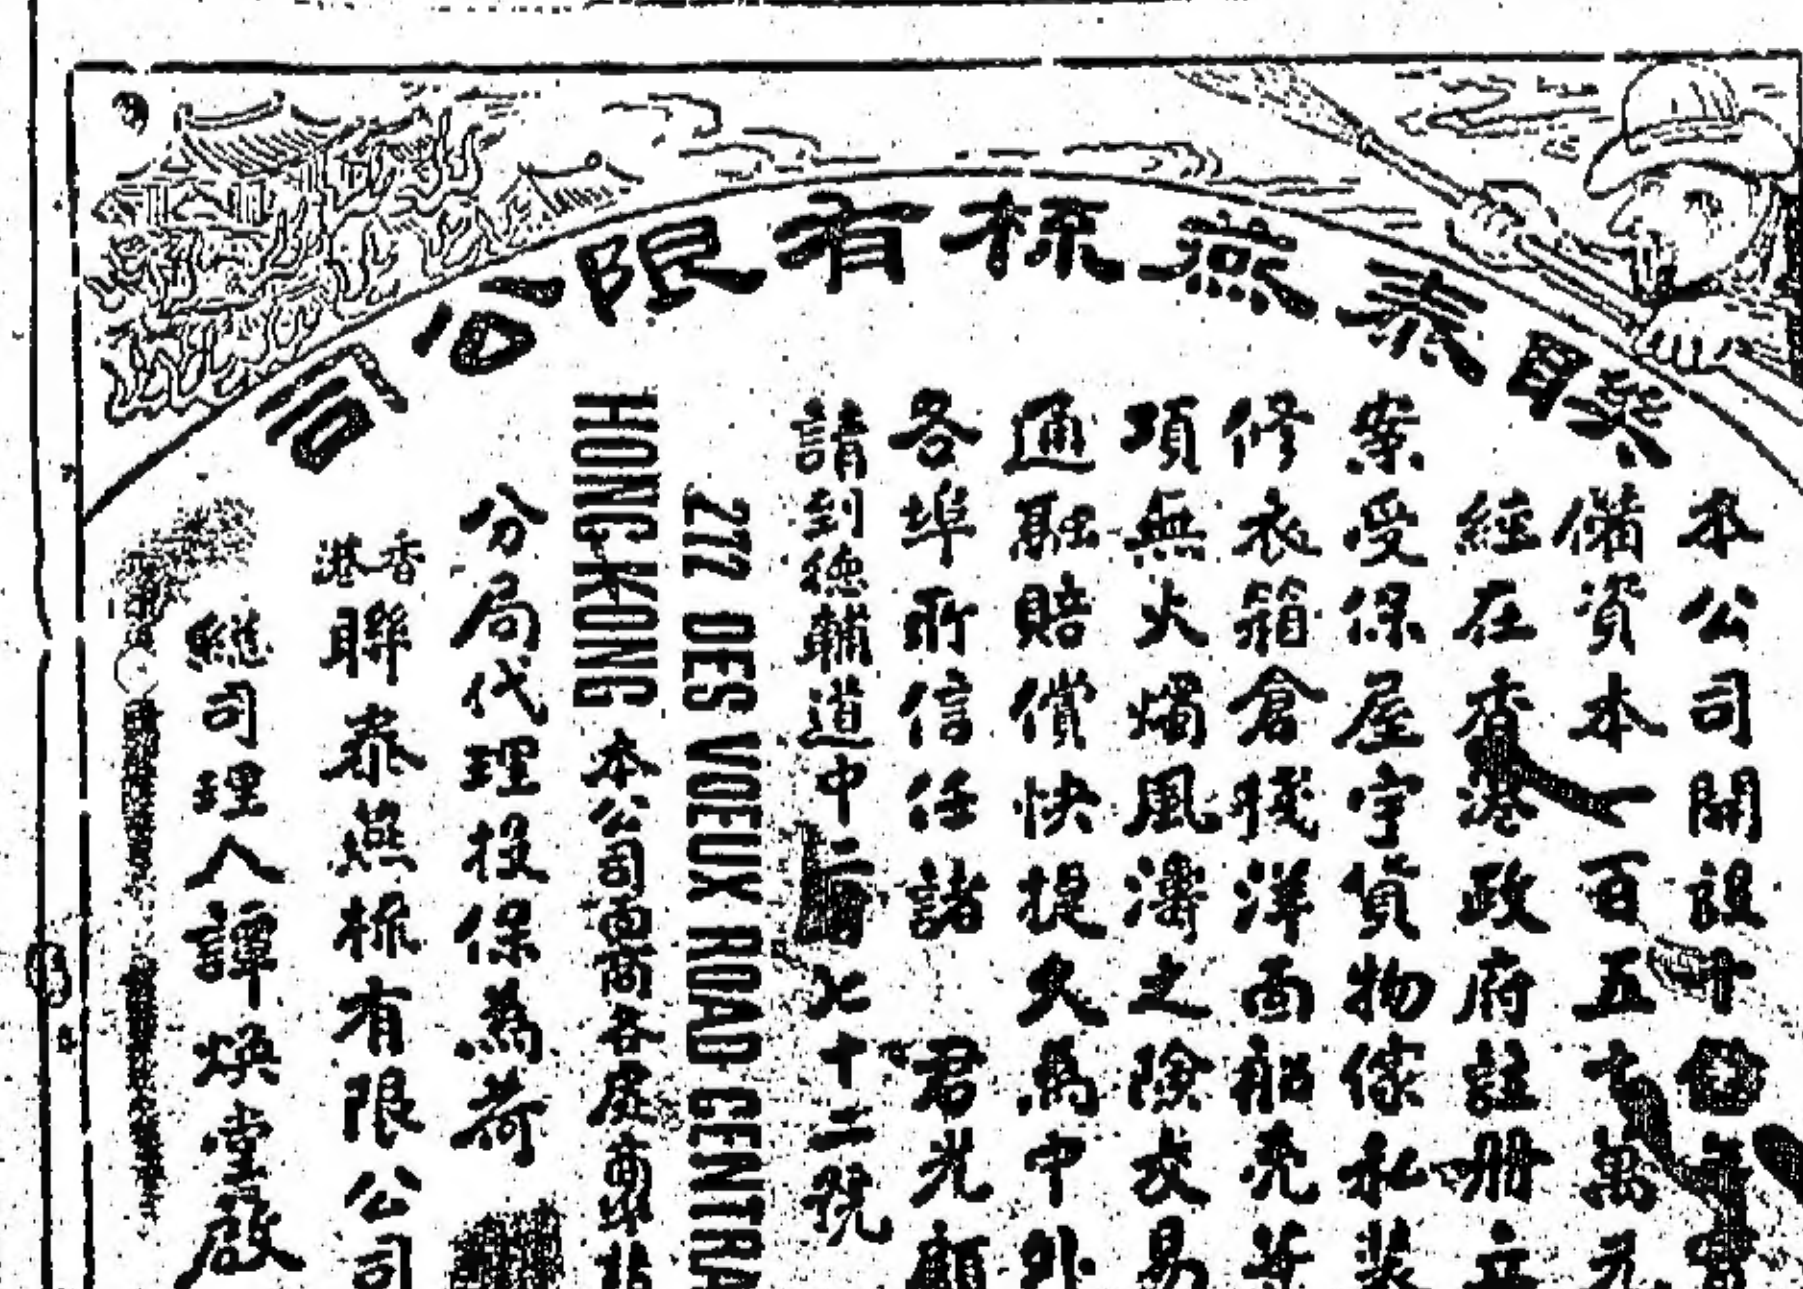 聯泰燕梳有限公司
本公司開設十四年實
備資本一百五十萬元
經在香港政府註冊立
案受保屋宇貨物傢私裝
修衣箱倉棧洋面船壳等
項無火燭風濤之險交易
通融賠償快捷久為中外
各埠所信任諸 君光顧
請到德輔道中二百七十二號
272 DES VOEUX ROAD CENTRA
HONG KONG 本公司面商各處商埠
分局代理投保為荷
香港聯泰燕梳有限公司
總司理人譚煥堂啟